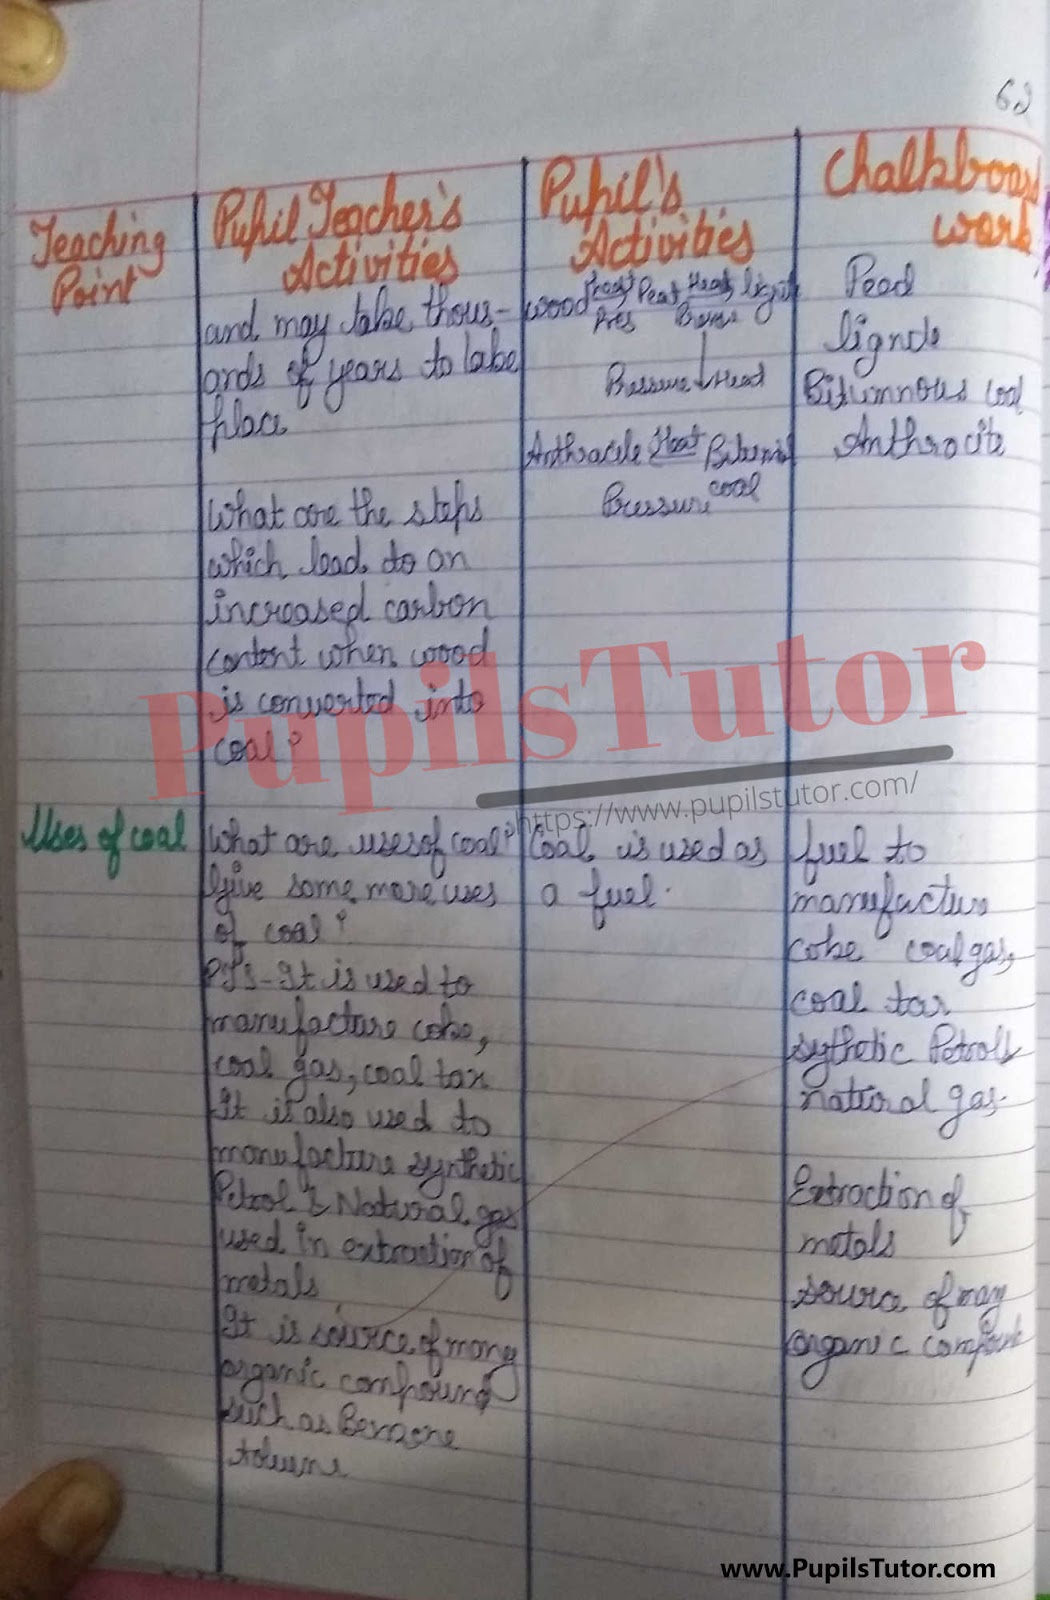 62
Teaching
Point
Pupil Teacher's
Activities
Pupil's
Activities
Chalkboard
work
and may take thous-
ands of years to take
place
What are the steps
which lead to an
increased carbon
content when wood
is converted into
coal?
Uses of coal
What are uses of coal?
Give some more uses
of coal?
P.T.S - It is used to
manufacture coke,
coal gas, coal tar
It is also used to
manufacture synthetic
Petrol & Natural gas
used in extraction of
metals
It is source of many
organic compound
such as Benzene
wood Peat Heat
Pres
Pressure Heat
Anthracite Heat
Pressure coal
Coal is used as
a fuel.
Pead
lignde
Bitumnous coal
Anthrocite
fuel to
manufacture
coke coal gas,
coal tar
sythetic Petrol
natural gas.
Extraction of
metals
source of many
organic
PupilsTutor
https://www.pupilstutor.com/
www.PupilsTutor.com